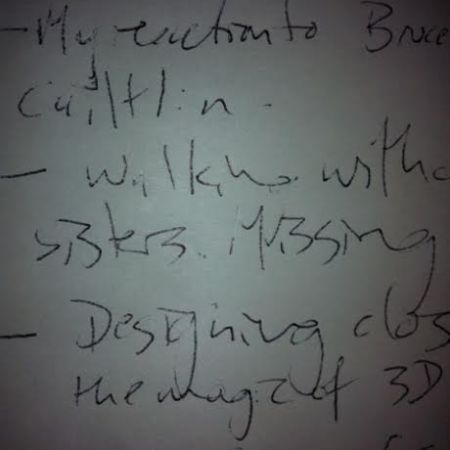 - My reaction to Bruce
Caitlin.
- Walking with
sisters. Missing
- Designing clos
the mag of 3D